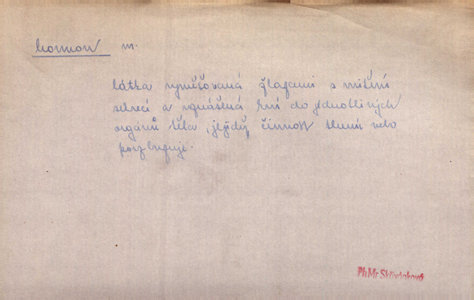 hormon m.
látka vyměšovaná žlazami s vnitřní
sekrecí a vnášená krví do jednotlivých
orgánů těla, jejichž činnost tlumí nebo
povzbuzuje.
PhMr. Skřivánková